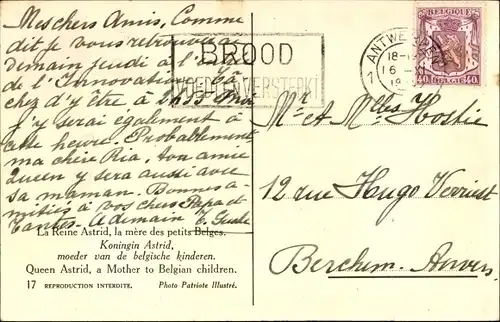 Mes chers Amis, Comme
dit je vous retrouverai
demain jeudi à l'
de l'Innovation.
chez d'y être à 2h35
j'y serai également à
cette heure. Probablement
ma chère Ria, ton amie
Queen y sera aussi avec
sa maman. Bonnes a-
mitiés à vos chers Papa et
Tantes. A demain
La Reine Astrid, la mère des petits Belges.
Koningin Astrid,
moeder van de belgische kinderen.
Queen Astrid, a Mother to Belgian children.
17 REPRODUCTION INTERDITE. Photo Patriote Illustré.
BROOD
VOEDT VERSTERKT
ANTWERPEN
18-
16
BELGIQUE
40 40
Mr et Mlles Hostie
12 rue Hugo Verriest
Berchem. Anvers